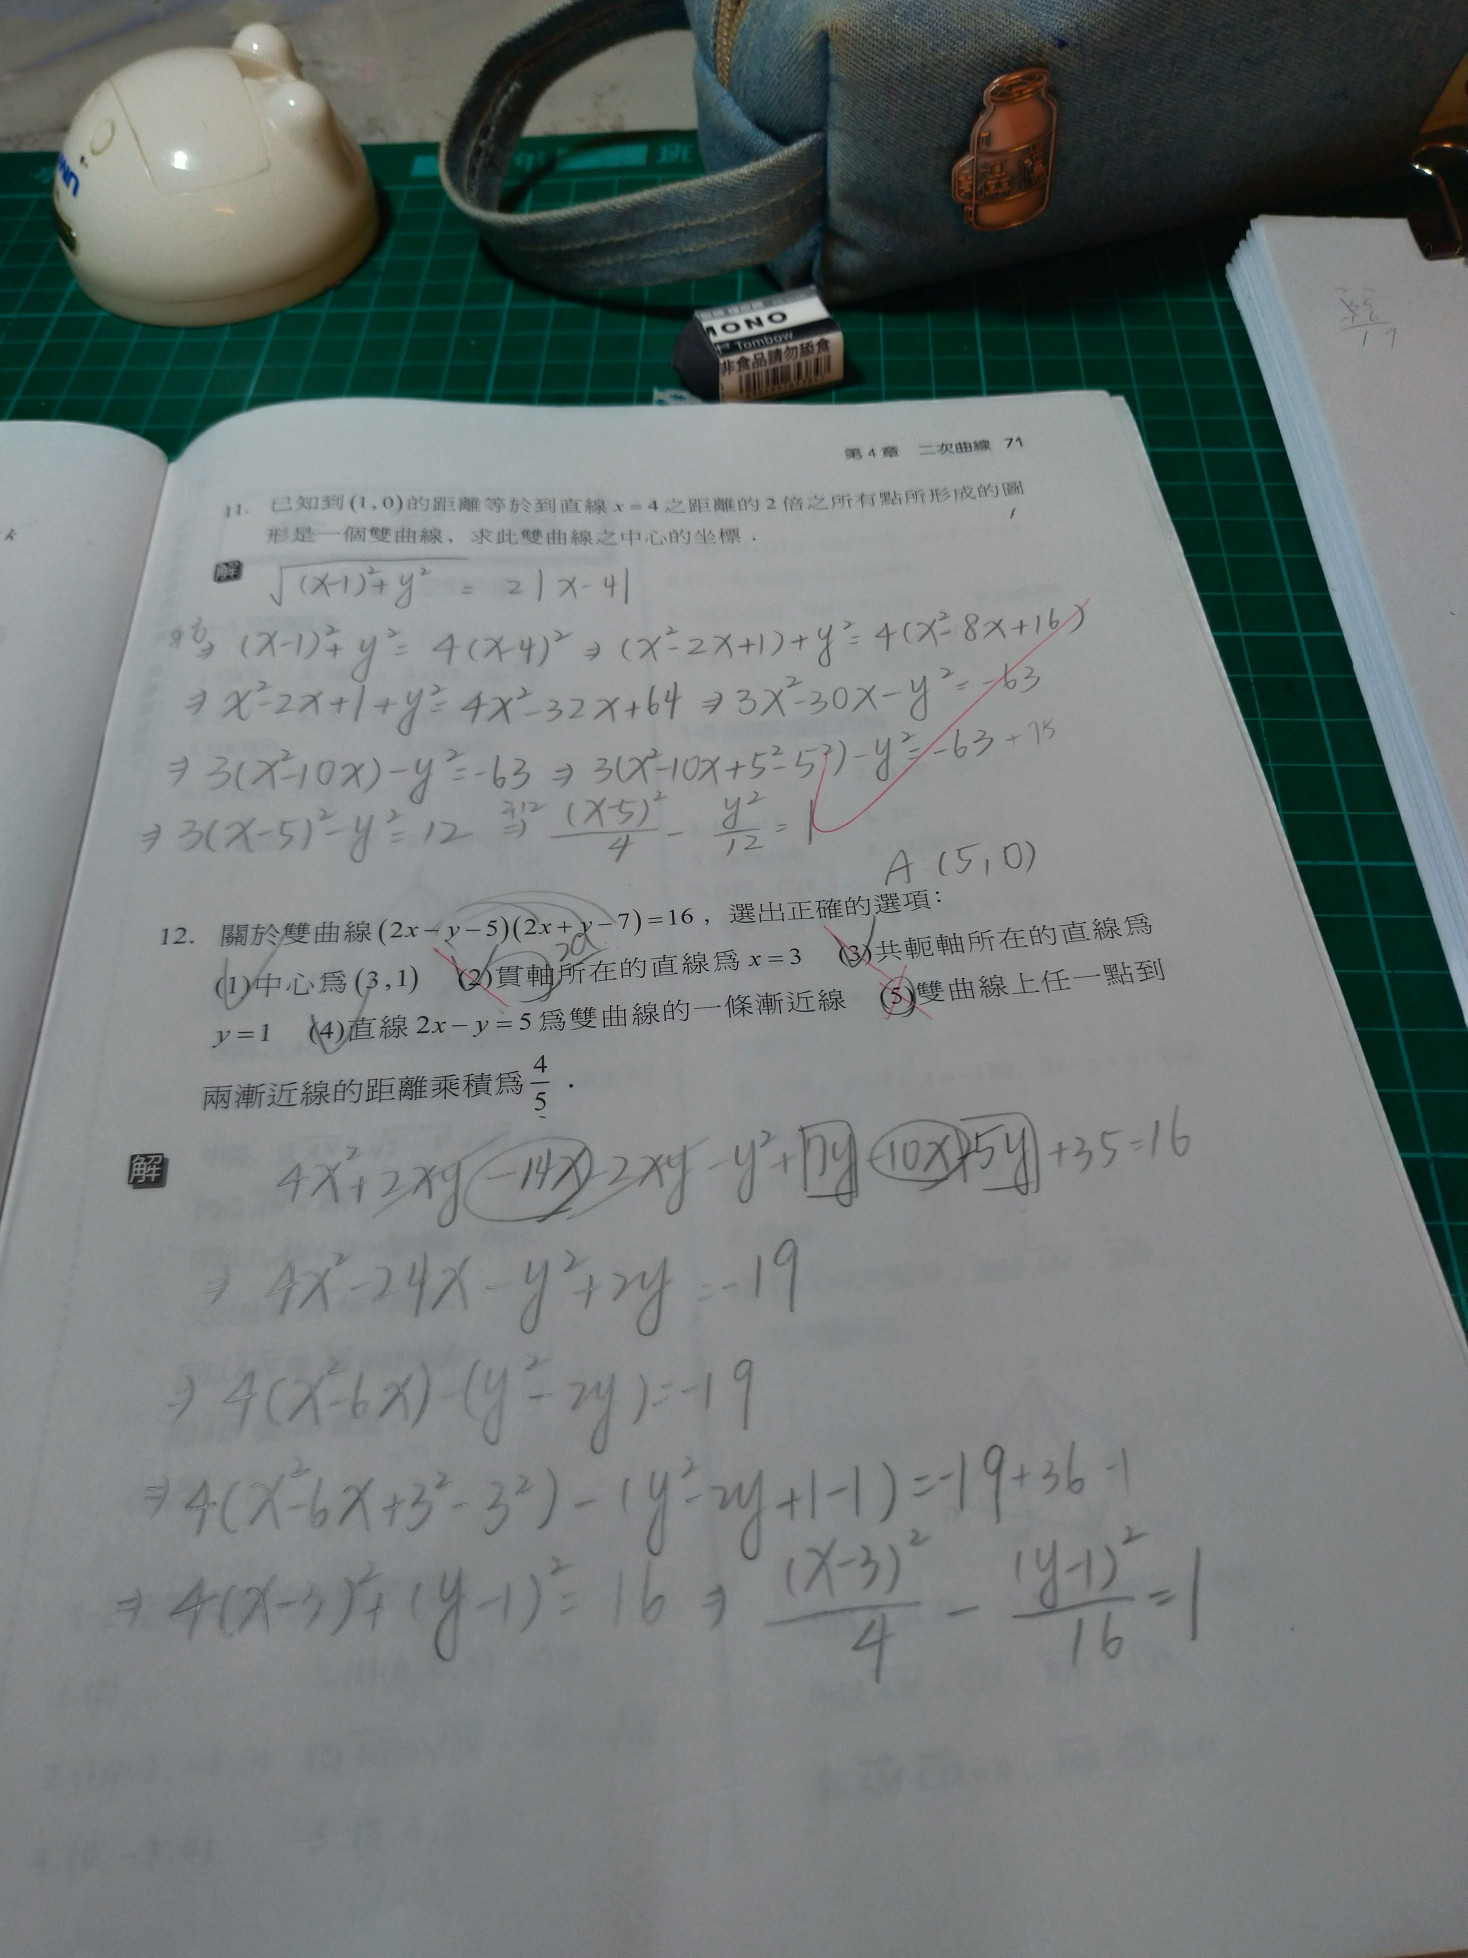 WIN
班
MONO
Tombow
非食品請勿舐食
k
第4章 二次曲線 71
11. 已知到(1,0)的距離等於到直線x=4之距離的2倍之所有點所形成的圖
形是一個雙曲線,求此雙曲線之中心的坐標.
解 √((x-1)²+y²) = 2|x-4|
⇒ (x-1)²+y²=4(x-4)² ⇒ (x²-2x+1)+y²=4(x²-8x+16)
⇒ x²-2x+1+y²=4x²-32x+64 ⇒ 3x²-30x-y²=-63
⇒ 3(x²-10x)-y²=-63 ⇒ 3(x²-10x+5²-5²)-y²=-63+75
⇒ 3(x-5)²-y²=12 ⇒ (x-5)²/4 - y²/12 = 1
A (5,0)
12. 關於雙曲線(2x-y-5)(2x+y-7)=16,選出正確的選項:
2a
(1)中心為(3,1) (2)貫軸所在的直線為x=3 (3)共軛軸所在的直線為
y=1 (4)直線2x-y=5為雙曲線的一條漸近線 (5)雙曲線上任一點到
兩漸近線的距離乘積為4/5.
解 4x²+2xy-14x-2xy-y²+7y-10x-5y+35=16
⇒ 4x²-24x-y²+2y=-19
⇒ 4(x²-6x)-(y²-2y)=-19
⇒ 4(x²-6x+3²-3²)-(y²-2y+1-1)=-19+36-1
⇒ 4(x-3)²+(y-1)²=16 ⇒ (x-3)²/4 - (y-1)²/16 = 1